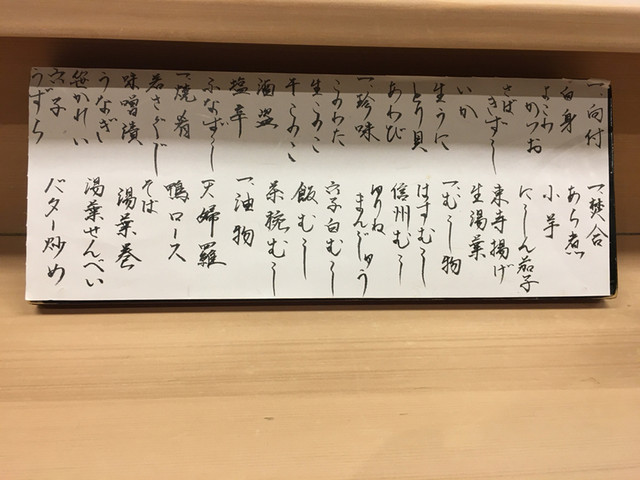 一、向付
白身
よこわ
かつお
さば
きずし
いか
生うに
とり貝
あわび
一、珍味
このわた
生このこ
干このこ
酒盗
塩辛
ふなずし
一、焼肴
若さぐじ
味噌漬
うなぎ
笹かれい
穴子
うずら
一、焚合
あら煮
小芋
にしん茄子
東寺揚げ
生湯葉
一、むし物
はすむし
信州むし
ゆりね
まんじゅう
穴子白むし
飯むし
茶碗むし
一、油物
天婦羅
鴨ロース
そば
湯葉巻
湯葉せんべい
バター炒め